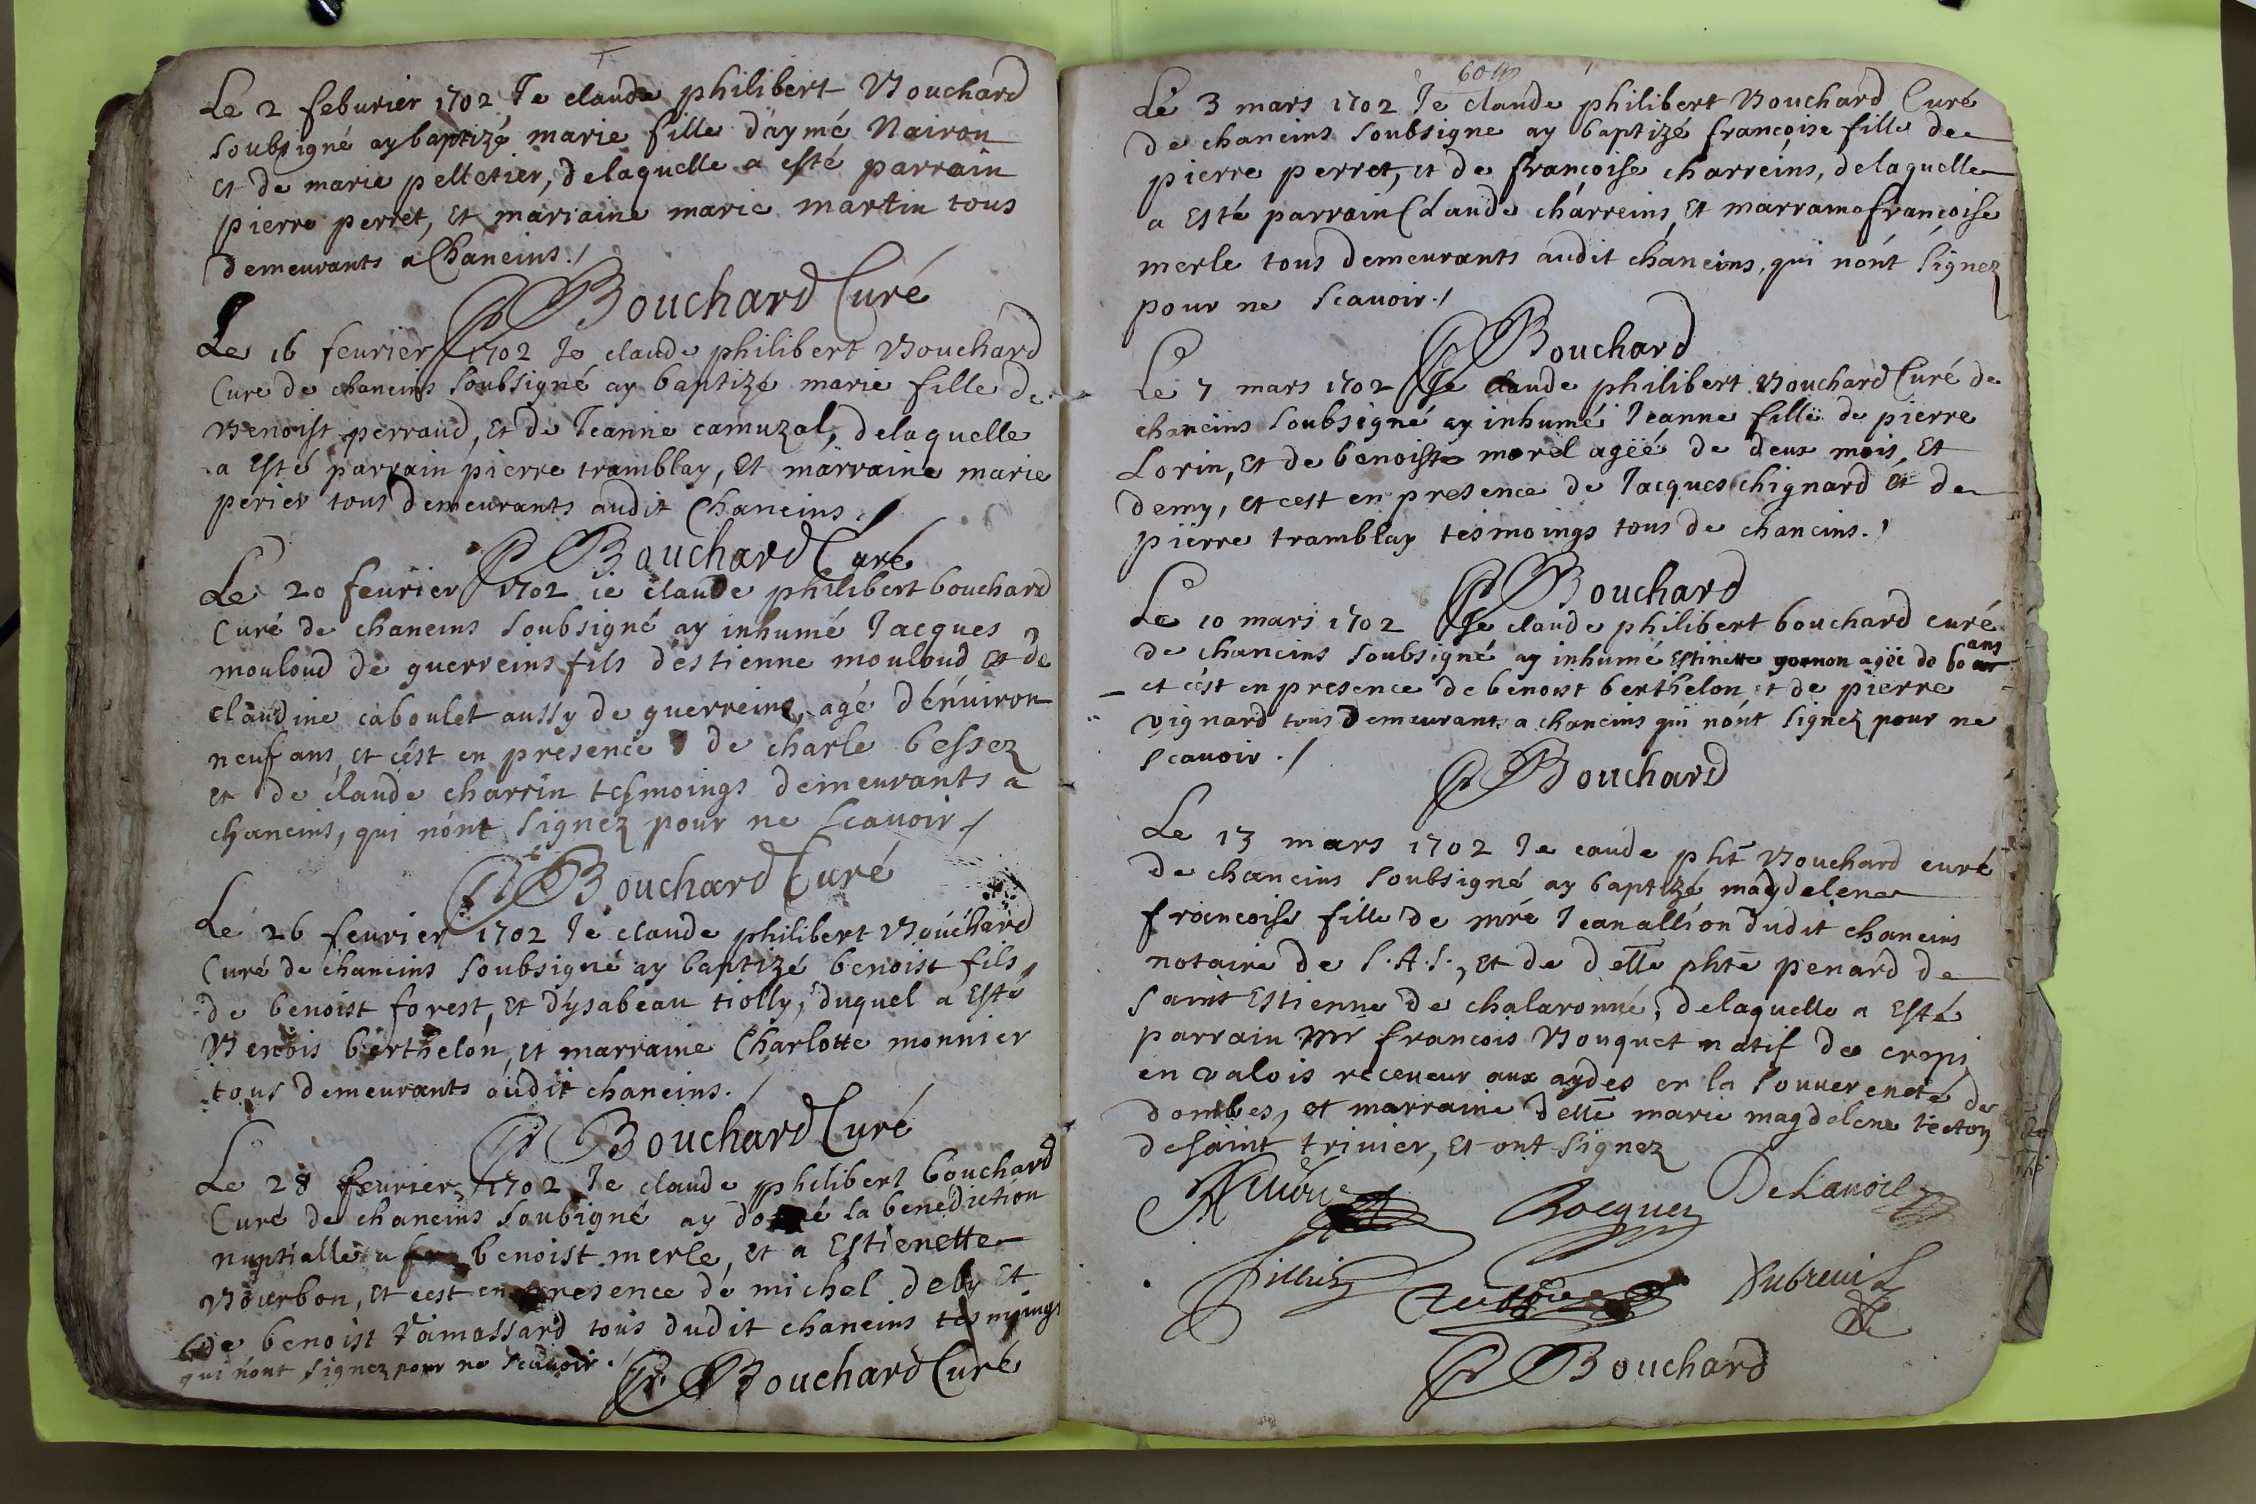 Le 2 feburier 1702 Je claude philibert Bouchard
soubsigné ay baptizé marie fille d'aymé Nairon
et de marie pelletier, delaquelle a esté parrain
pierre perret, et marraine marie martin tous
demeurants a Chaneins./
Bouchard Curé
Le 16 feurier 1702 Je claude philibert Bouchard
Curé de chaneins soubsigné ay baptizé marie fille de
Benoist perraud, et de Jeanne camuzal, delaquelle
a esté parrain pierre tramblay, et marraine marie
perier tous demeurants audit Chaneins ./
Bouchard Curé
Le 20 feurier 1702 ie claude philibert bouchard
Curé de chaneins soubsigné ay inhumé Jacques
mouloud de guerreins fils d'estienne mouloud et de
claudine caboulet aussy de guerreins, agé d'énuiron
neuf ans, et cést en presence de charle bessez
et de claude charrin tesmoings demeurants a
chaneins, qui nónt signez pour ne scauoir ./
Bouchard Curé
Le 26 feurier 1702 Je claude philibert Bouchard
Curé de chaneins soubsigné ay baptizé benoist fils
de benoist forest, et d'ysabeau tiolly, duquel a esté
Benois berthelon, et marraine Charlotte monnier
tous demeurants audit chaneins. /
Bouchard Curé
Le 28 feurier 1702 Je claude philibert bouchard
Curé de chaneins soubigné ay donné la benediction
nuptialle a benoist merle, et a Estienette
Bourbon, et cest en presence de michel dely et
de benoist ramassard tous dudit chaneins tesmoings
qui nónt signez pour ne scauoir ./
Bouchard Curé
60
Le 3 mars 1702 Je claude philibert Bouchard Curé
de chaneins soubsigne ay baptizé francoise fille de
pierre perret, et de françoise charreins, delaquelle
a Esté parrain Claude charreins, et marraine françoise
merle tous demeurants audit chaneins, qui nónt signez
pour ne scauoir ./
Bouchard
Le 7 mars 1702 Je claude philibert Bouchard Curé de
chaneins soubsigné ay inhumé Jeanne fille de pierre
Lorin, et de benoiste morel ageé de deux mois, et
demy, et cest en presence de Jacques chignard et de
pierre tramblay tesmoings tous de chaneins. /
Bouchard
Le 10 mars 1702 Je claude philibert bouchard curé
de chaneins soubsigné ay inhumé Estinette gonon ageé de 60 ans
et cést en presence de benoist berthelon, et de pierre
vignard tous demeurants a chaneins qui nónt signez pour ne
scauoir ./
Bouchard
Le 13 mars 1702 Je caude pht Bouchard curé
de chaneins soubsigné ay baptizé magdelene
francoise fille de mre Jean allion dudit chaneins
notaire de S.A.S., et de delle phte penard de
saint Estienne de chalaronne, delaquelle a Esté
parrain Mr francois Bouquet natif de crepi
en valois receueur aux aydes en la souuereneté de
dombes, et marraine delle marie magdelene teeton
de saint triuier, et ont signez
Delanoil
Dubreuil
Bouchard